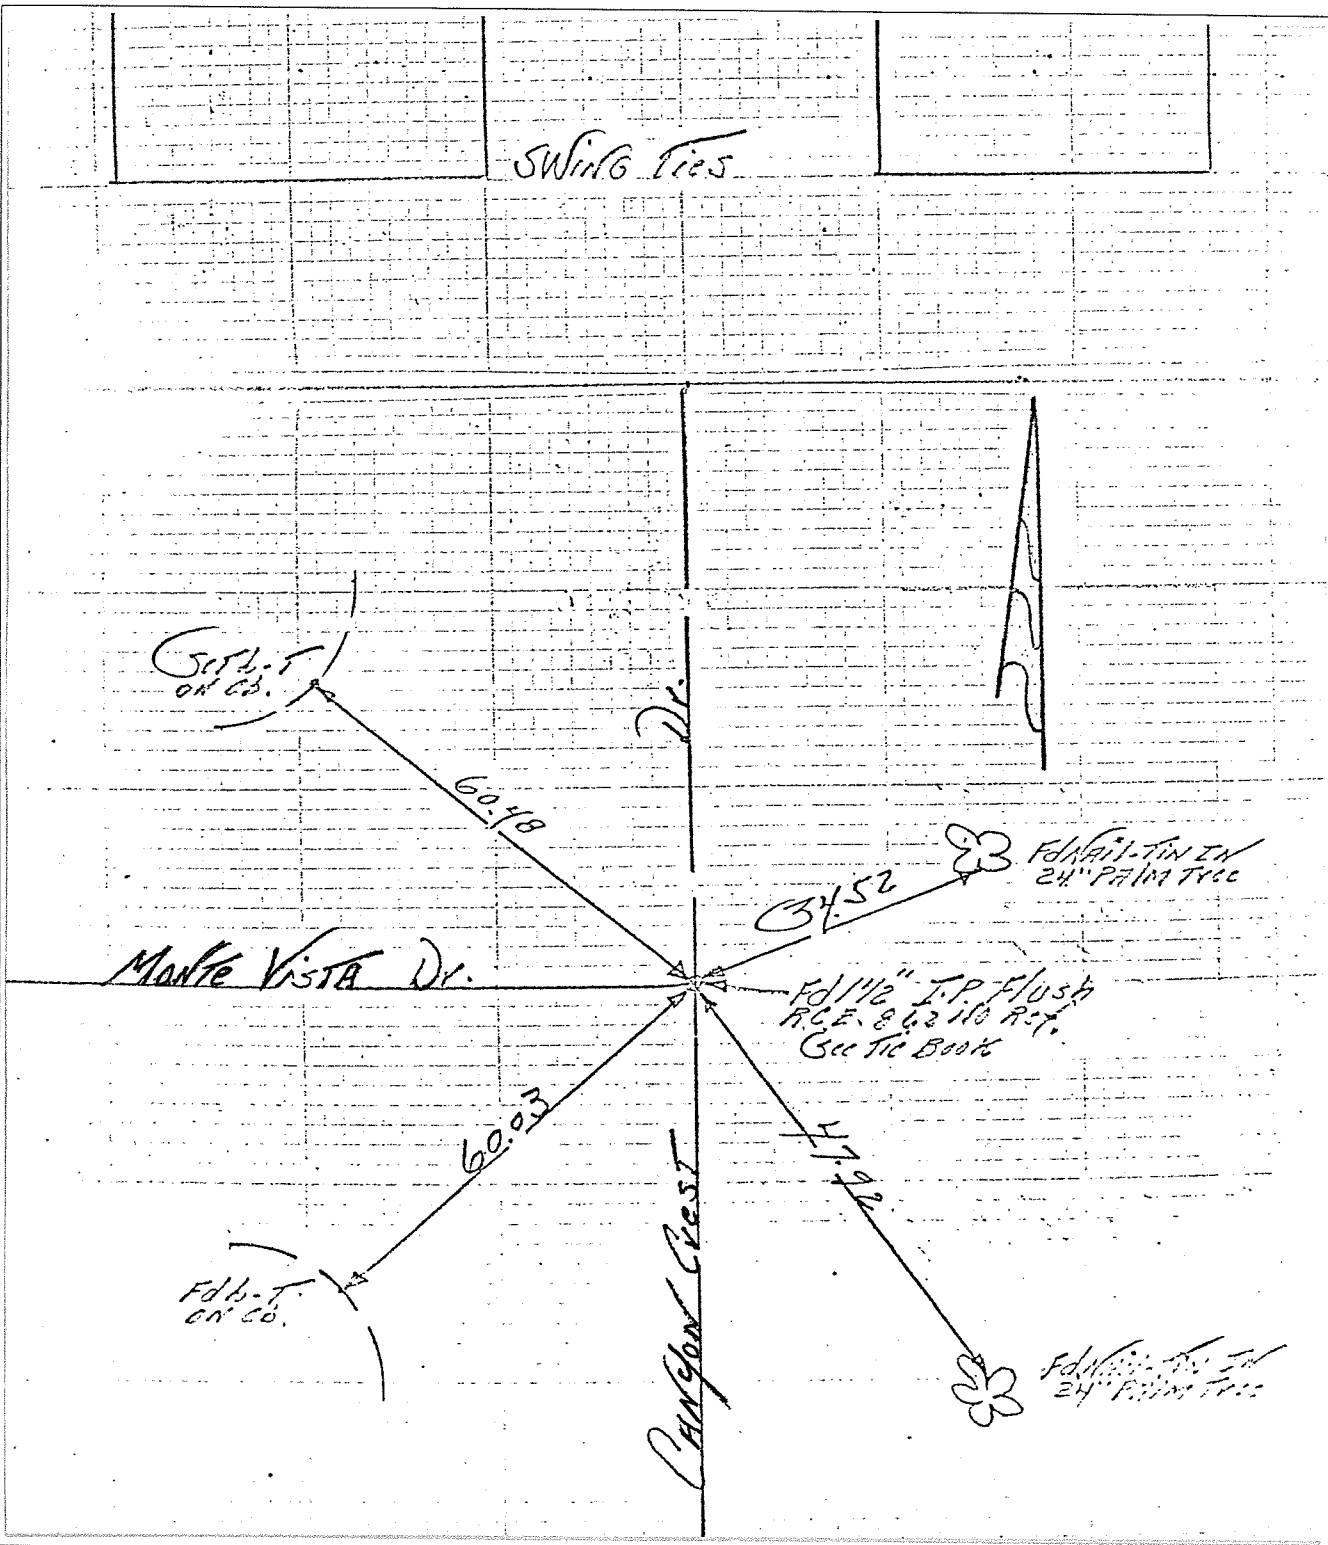 SWING Ties
Set L-T
ON Cb.
Dr.
60.48
Fd Nail-Tin IN
24" PALM Tree
34.52
MONTE VISTA Dr.
Fd 1 1/2" I.P. Flush
R.C.E. No Ref.
See Tie Book
60.03
47.92
CANYON CREST
Fd L-T
ON Cb.
Fd Nail-Tin IN
24" PALM Tree